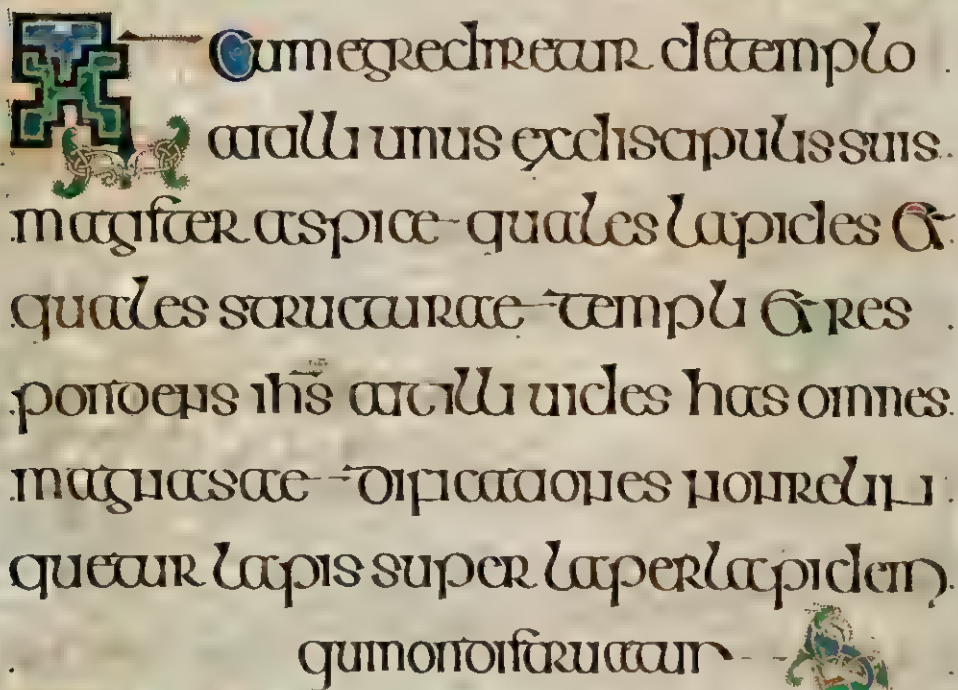 Et cum egrediretur de templo
ait illi unus ex discipulis suis
magister aspice quales lapides et
quales structurae templi et res
pondens ihs ait illi uides has omnes
magnas aedificationes non relin
quetur lapis super laper lapidem
qui non distruatur